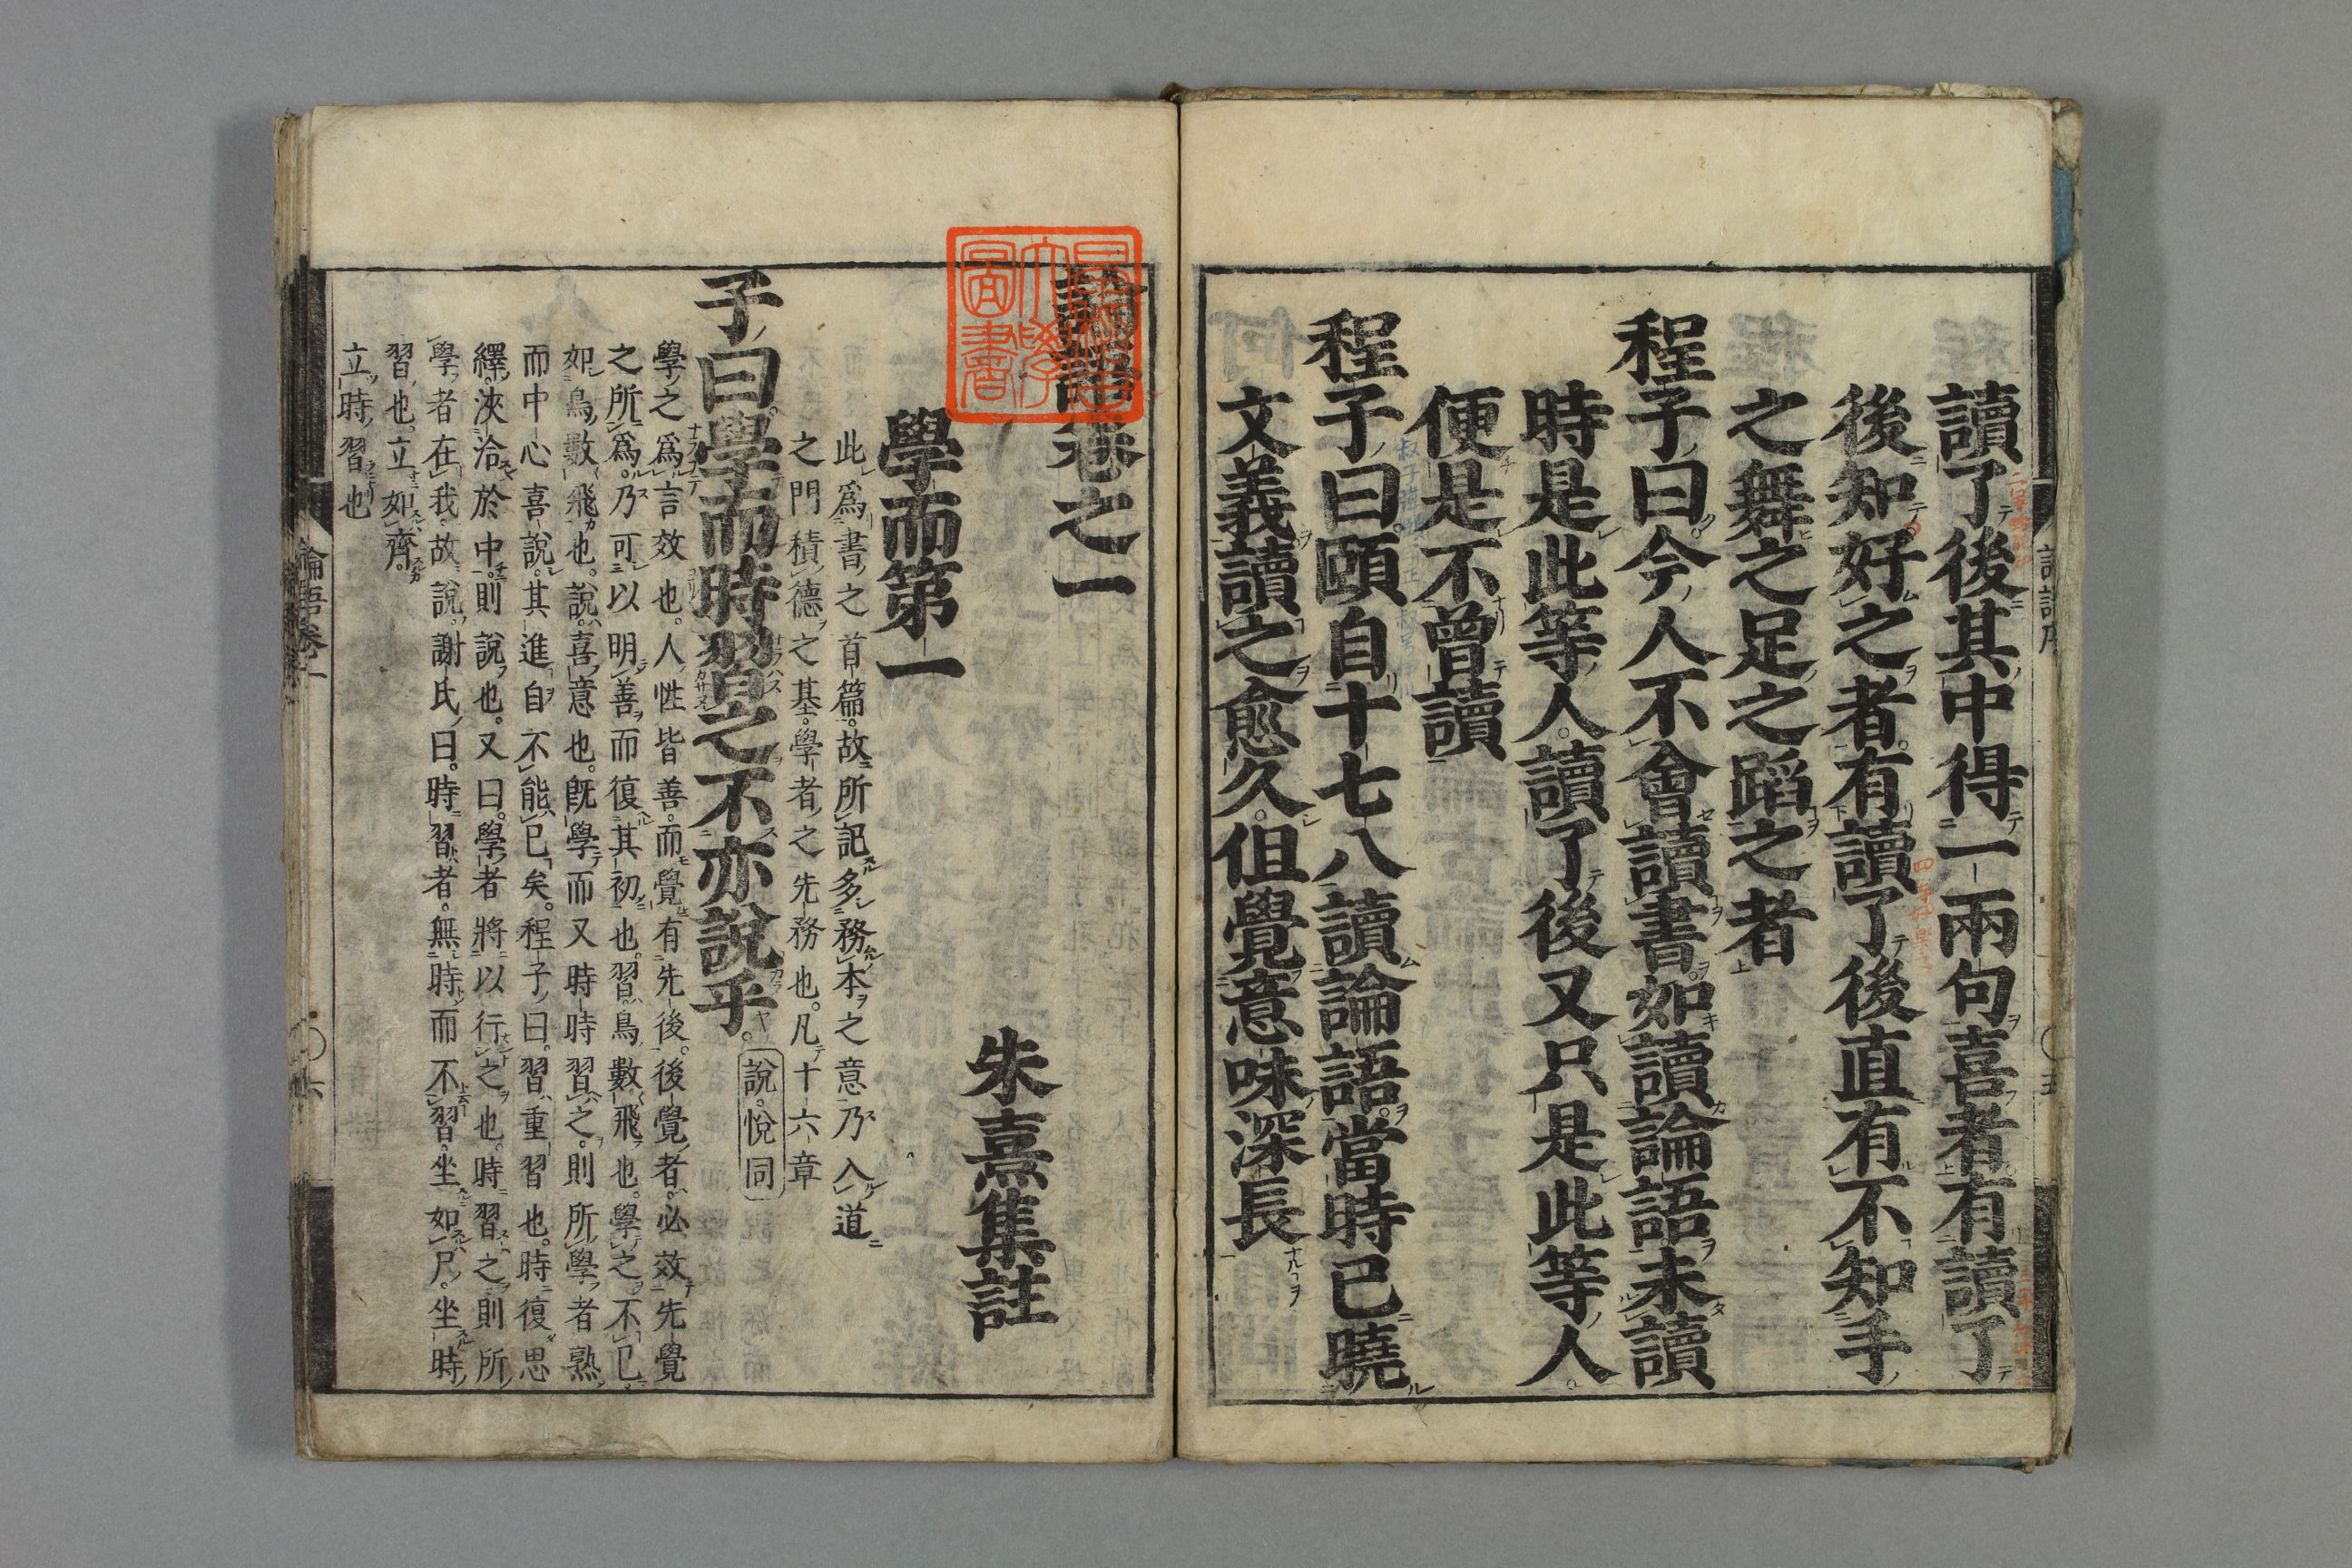 讀了後其中得一兩句喜者有讀了
後知好之者有讀了後直有不知手
之舞之足之蹈之者
程子曰今人不會讀書如讀論語未讀
時是此等人讀了後又只是此等人
便是不曾讀
程子曰頤自十七八讀論語當時已曉
文義讀之愈久但覺意味深長
論語卷之一
朱熹集註
學而第一
此爲書之首篇故所記多務本之意乃入道
之門積德之基學者之先務也凡十六章
子曰學而時習之不亦說乎
說悅同
學之爲言效也人性皆善而覺有先後後覺者必效先覺
之所爲乃可以明善而復其初也習鳥數飛也學之不已
如鳥數飛也說喜意也旣學而又時時習之則所學者熟
而中心喜說其進自不能已矣程子曰習重習也時復思
繹浹洽於中則說也又曰學者將以行之也時習之則所
學者在我故說謝氏曰時習者無時而不習坐如尸坐時
習也立如齊
立時習也
論語卷一
六